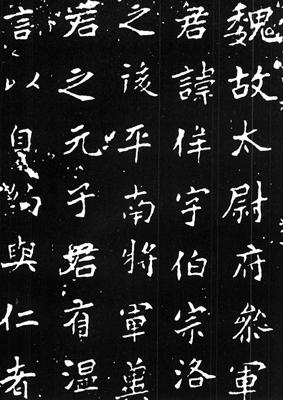 魏故太尉府叅軍
君諱侔字伯宗洛
之後平南將軍
君之元子君有温
言以自約與仁者